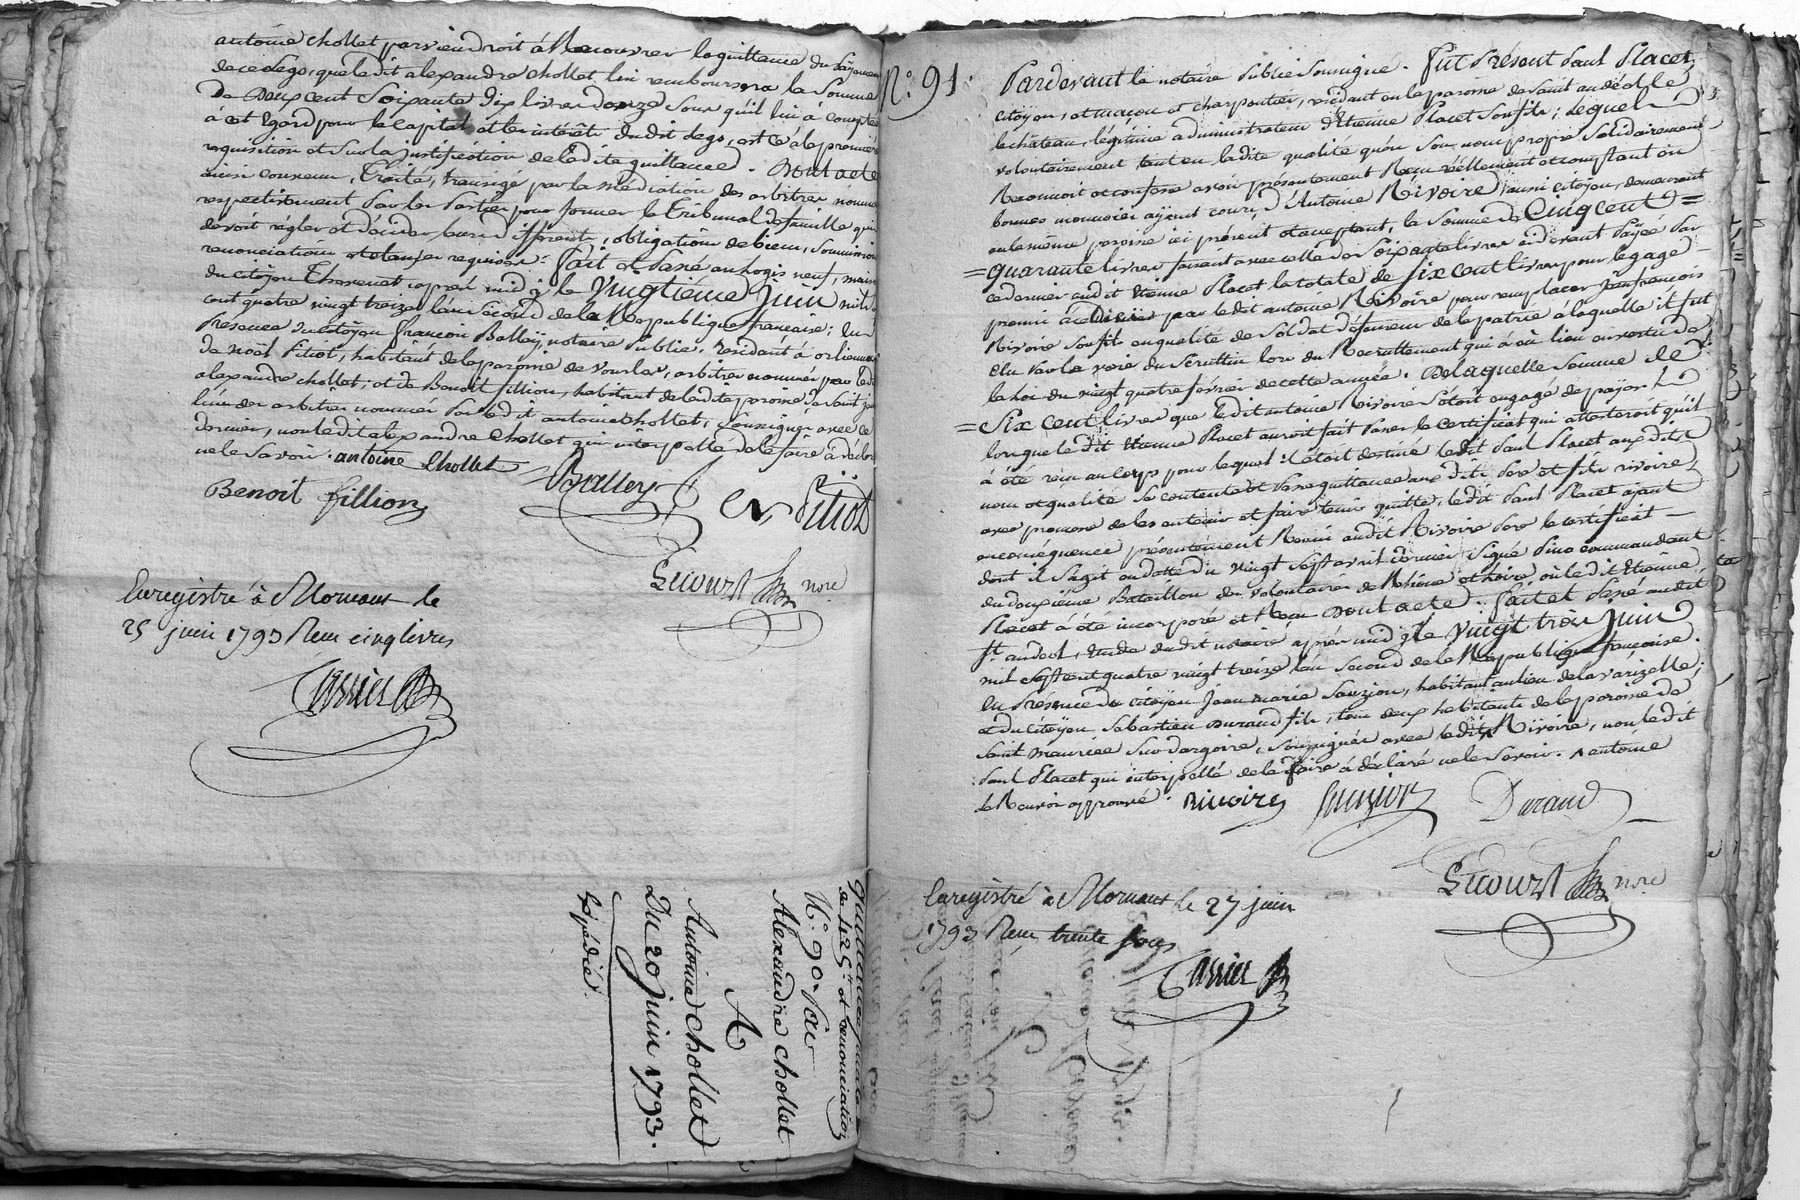 antoine chollet parviendroit à Recouvrer la quittance du payement
de ce dego, que ledit alexandre chollet lui remboursera la Somme
De Deux cent Soixante dix livres douze Sous qu'il lui à compté
a cet Egard pour le capital et les intérêts dudit dego, est ce à la premiere
requisition et Sur la justification de ladite quittance. Dont acte
ainsi convenu, traité, transigé par la médiation des arbitres nommés
respectivement Par les Parties pour former le Tribunal de famille qui
devoit régler et décider leurs différents, obligations de biens, Soumissions
renonciations et clauses requises. fait et Passé au logis neuf, maison
du citoyen Thevenet après midi le vingtième juin mil sept
cent quatre vingt treize l'an Second de la Republique française; En
Presence du citoyen françois Balley, notaire Public residant à orlienas
de noël Pitiot, habitant de la paroisse de vourles, arbitres nommés par ledit
alexandre chollet; et de Benoit fillion, habitant de ladite paroisse de Saint
l'un des arbitres nommés Par ledit antoine chollet, Soussignés avec ce
dernier, non ledit alexandre Chollet qui interpellé de le faire à déclaré
ne le Savoir. antoine Chollet
Benoit fillion Balley N Pitiot
Lecourt nore
Enregistré à Mornant le
25 juin 1793 Reçu cinq livres
Carrier
Quittance
de 425# et renonciation
N.º 90. Par
Alexandre chollet
A
Antoine chollet
Du 20 juin 1793.
Expédié.
N.º 91. Pardevant le notaire Public Soussigné. fut Présent Paul Placet,
citoyen, et maçon et charpentier, residant en la paroisse de Saint andéol le
le château, légitime administrateur d'Etienne Placet Son fils; lequel
volontairement tant en ladite qualité qu'en Son nom propre Solidairement
Reconnoit et confesse avoir présentement Reçu réellement et comptant en
bonnes monnoies ayant cours, d'Antoine Rivoire aussi citoyen, demeurant
en la même paroisse ici présent et acceptant, la Somme de Cinq cent =
= quarante livres faisant avec celle de Soixante livres ci devant Payée Par
ce dernier audit Etienne Placet la totale de Six cent livres pour le gage
promis à ce dernier par ledit antoine Rivoire pour remplacer Jean françois
Rivoire Son fils en qualité de Soldat défenseur de la patrie à laquelle il fut
Elu Par la voie du Scrutin lors du Recrutement qui à eû lieu en vertu de
la loi du vingt quatre fevrier de cette année. De laquelle Somme de
= Six cent livres que ledit antoine Rivoire S'étoit engagé de payer
lorsque ledit Etienne Placet auroit fait Passer le certificat qui attesteroit qu'il
à été reçu au corps pour lequel il étoit destiné ledit Paul Placet auxdits
nom et qualité Se contente et Passe quittance aux dits Pere et fils rivoire
avec promesse de les en tenir et faire tenir quitte, ledit Paul Placet ayant
en conséquence présentement Remis audit Rivoire Pere le certificat
dont il S'agit en datte du vingt Sept avril dernier Signé Pino commandant
du douxième Bataillon des volontaires de Rhône et Loire, où ledit Etienne
Placet à été incorporé et Reçu Dont acte. fait et Passé audit
St. andeol, Etude dudit notaire après midi le vingt trois juin
mil Sept cent quatre vingt treize l'an Second de la Republique francoise.
En Présence du citoyen Jean marie Sauzion, habitant au lieu de la varizelle;
et du citoyen Sébastien Durand fils, tous deux habitants de la paroisse de
Saint maurice Sur dargoire, Soussignés avec ledit ^ Rivoire, non ledit
Paul Placet qui interpellé de le faire à déclaré ne le Savoir. ^ antoine
le Renvoi approuvé. Rivoire Sauzion Durand
Lecourt nore
Enregistré à Mornant le 27 juin
1793 Reçu trente Sous
Carrier